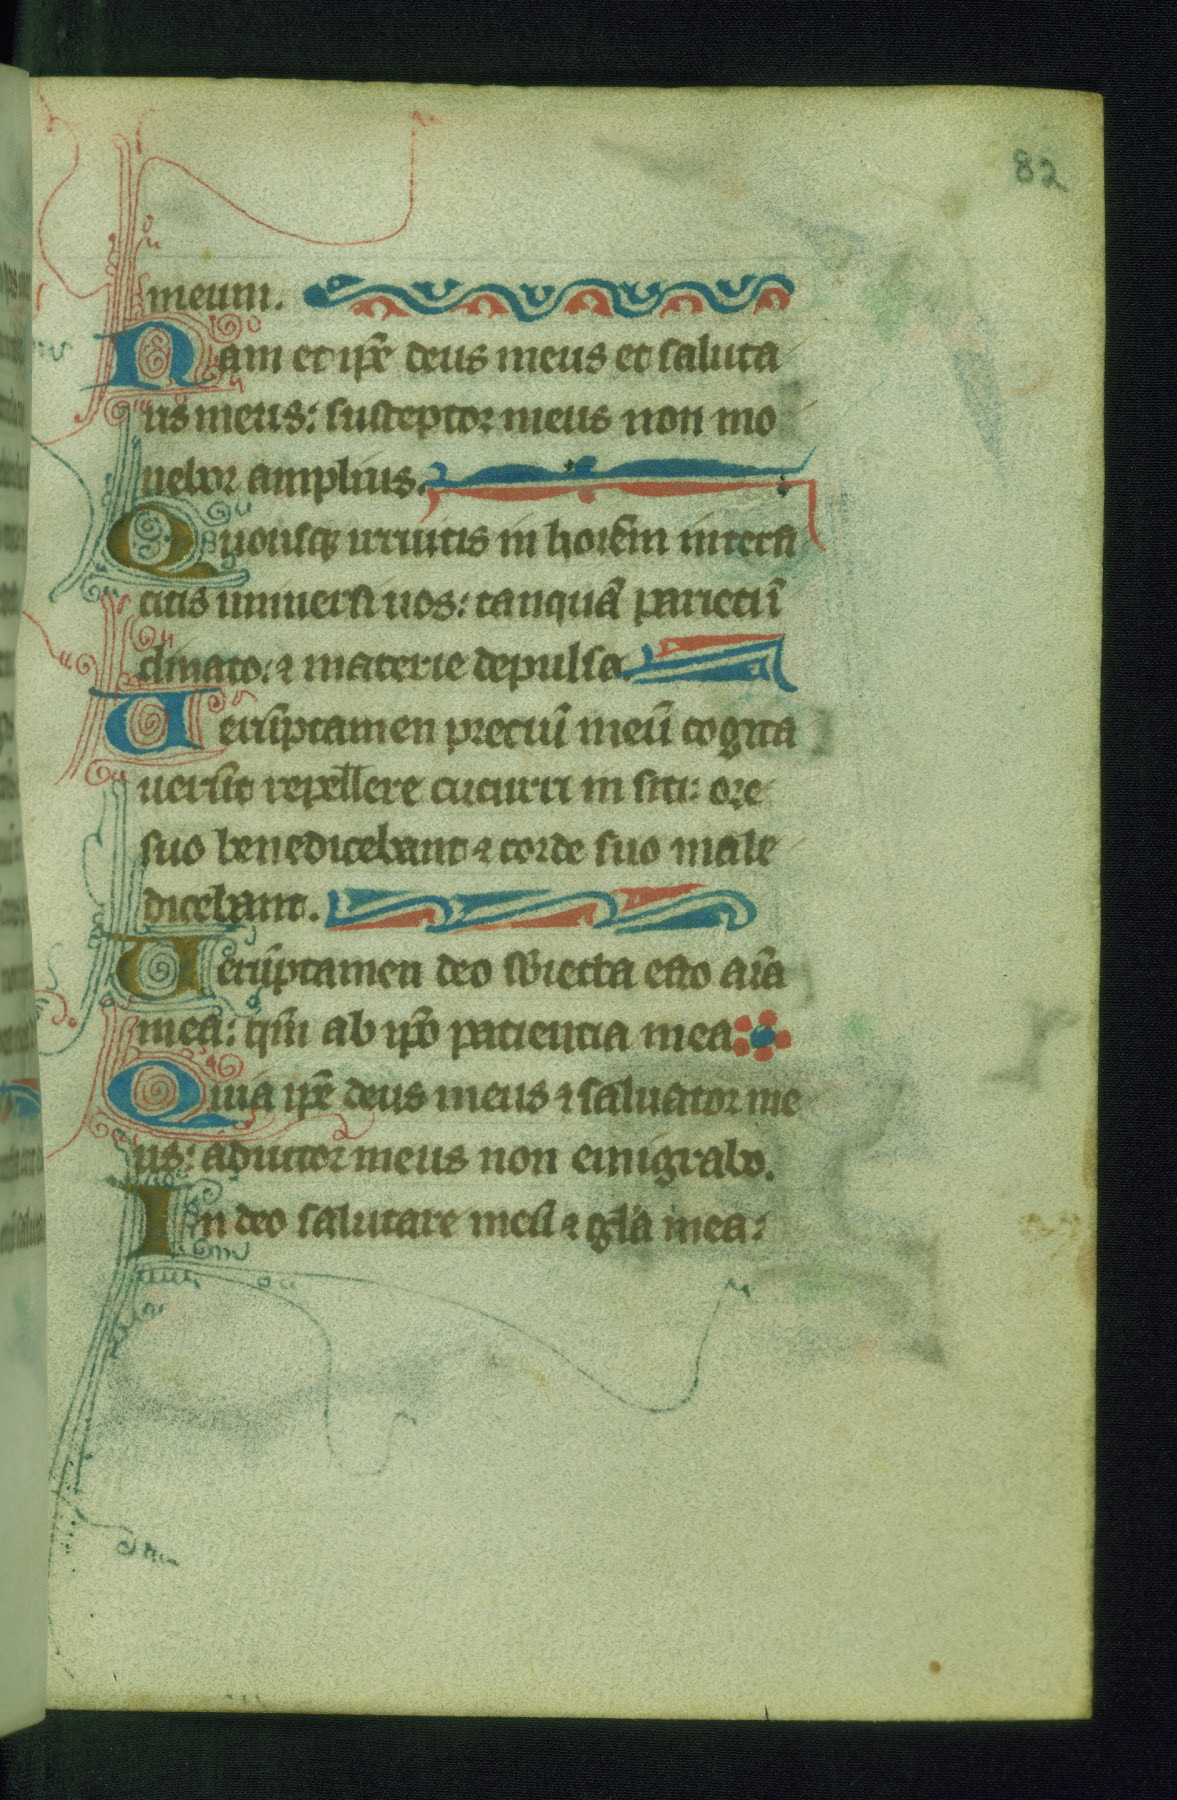 82
meum.
Nam et ip̄e deus meus et saluta
us meus: susceptor meus non mo
uebor amplius.
Quousq; irruitis in hoīem interfi
citis uniuersi uos: tanquā parieti ī
clinato: ⁊ materie depulse.
Uerūptamen preciū meū cogita
uerūt repellere cucurri in siti: ore
suo benedicebant ⁊ corde suo male
dicebant.
Uerūptamen deo sb̄iecta esto aīa
mea: qm̄ ab ip̄o patientia mea
Quia ip̄e deus meus ⁊ saluator me
us: adiutor meus non emigrabo.
In deo salutare meū ⁊ gl̄a mea: